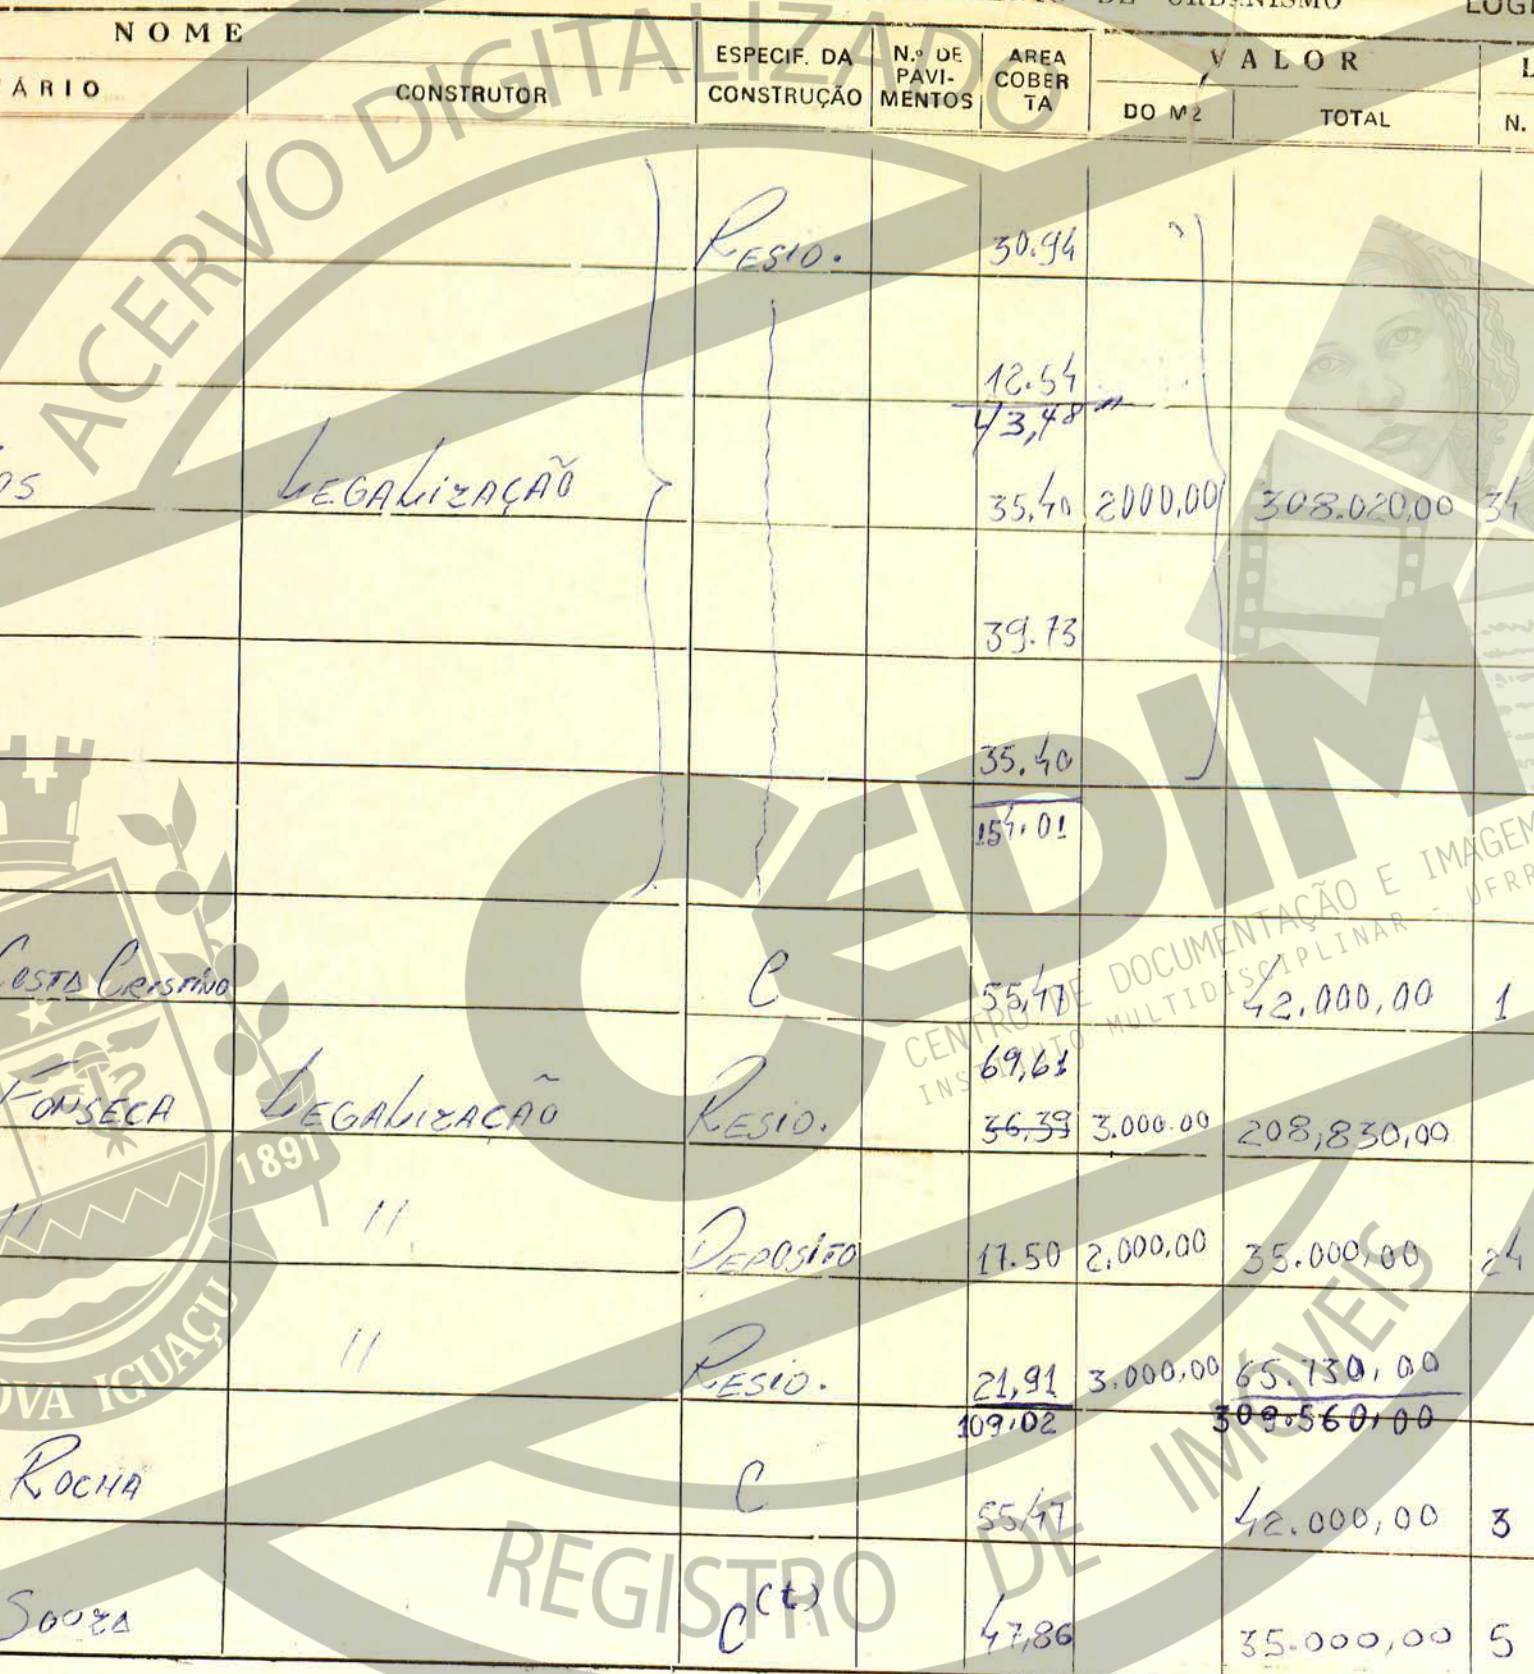 DE URBANISMO
NOME
ESPECIF. DA CONSTRUÇÃO
N.º DE PAVI-MENTOS
AREA COBER TA
VALOR
ÁRIO
CONSTRUTOR
DO M2
TOTAL
N.
RESID. 30.94
12.54
43,48
OS LEGALIZAÇÃO 35,40 2000,00 308.020,00 34
39.73
35.40
154.01
COSTA CRISTINO C 55,47 42.000,00 1
69,61
FONSECA LEGALIZAÇÃO RESID. 36,39 3.000.00 208,830,00
" " DEPOSITO 17.50 2.000,00 35.000,00 24
" RESID. 21,91 3.000,00 65.730,00
109.02 309.560,00
ROCHA C 55,47 42.000,00 3
SOUZA C (t) 47,86 35.000,00 5
ACERVO DIGITALIZADO
CEDIM
CENTRO DE DOCUMENTAÇÃO E IMAGEM
INSTITUTO MULTIDISCIPLINAR - UFRR
1891
OVA IGUAÇU
REGISTRO DE IMÓVEIS